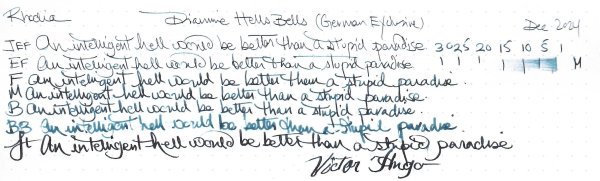 Rhodia Diamine Hells Bells (German Exclusive) Dec 2024
JEF An intelligent hell would be better than a stupid paradise. 30 25 20 15 10 5 1
EF An intelligent hell would be better than a stupid paradise M
F An intelligent hell would be better than a stupid paradise.
M An intelligent hell would be better than a stupid paradise.
B An intelligent hell would be better than a stupid paradise.
BB An intelligent hell would be better than a stupid paradise.
Jt An intelligent hell would be better than a stupid paradise
Victor Hugo